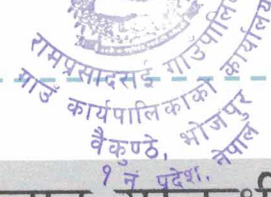 रामप्रसादराई गाउँपालिका
गाउँ कार्यपालिकाको कार्यालय
वैकुण्ठे, भोजपुर
१ नं प्रदेश, नेपाल